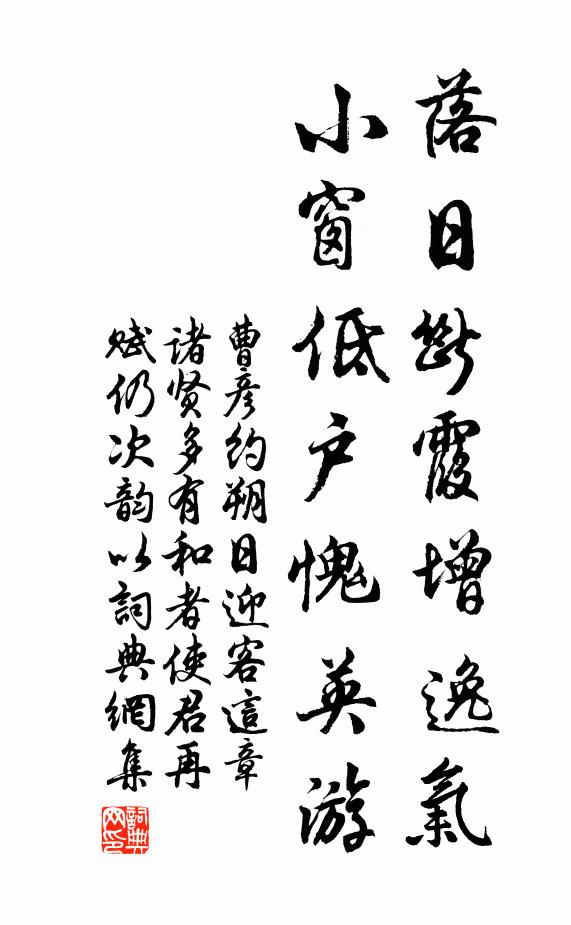 落日斷霞增逸氣
小窗低户愧英游
曹彦約朔日迎客這章
诸贤多有和者使君再
赋仍次韵以詞典網集
詞典
网印